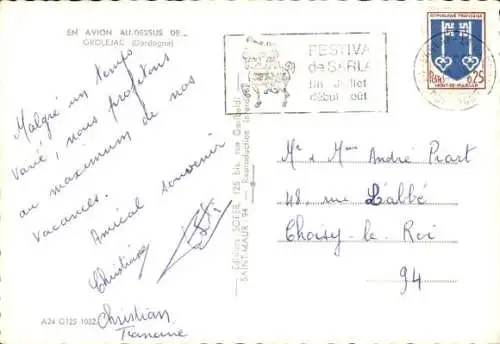 EN AVION AU-DESSUS DE...
GROLEJAC (Dordogne)
Malgré un temps
varié, nous profitons
au maximum de nos
vacances.
Amical souvenir
Christiane
Christian
Francine
A24 0125 1032
Editions SOFER, 125 bis, rue Garibaldi
SAINT-MAUR 94 — Reproduction interdite
FESTIVA
de SARLA
fin Juillet
début oût
REPUBLIQUE FRANÇAISE
Postes 0,25
MONT-DE-MARSAN
Mr & Mme André Prart
48, rue L'abbé
Choisy-le-Roi
94